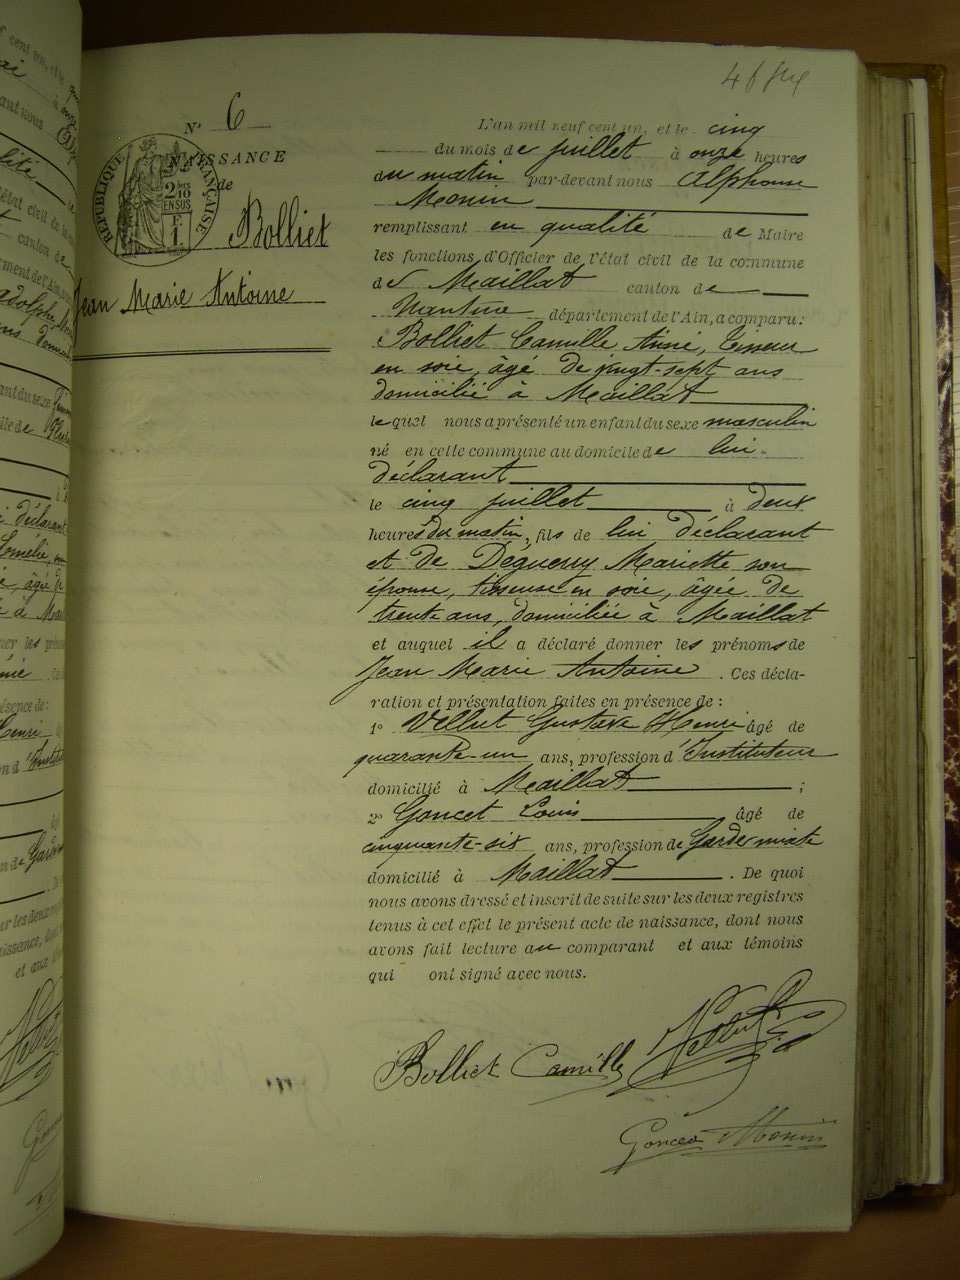 4 f
N° 6
NAISSANCE
de
RÉPUBLIQUE FRANÇAISE
2 DES 10
EN SUS
F. 1
Bolliet
Jean Marie Antoine
L'an mil neuf cent un, et le cinq
du mois de juillet à onze heures
du matin par-devant nous Alphonse
Monin
remplissant en qualité de Maire
les fonctions d'Officier de l'état civil de la commune
de Maillat canton de
Nantua département de l'Ain, a comparu:
Bolliet Camille Aimé, tisseur
en soie, âgé de vingt-sept ans
domicilié à Maillat
lequel nous a présenté un enfant du sexe masculin
né en cette commune au domicile de lui
déclarant
le cinq juillet à deux
heures du matin, fils de lui déclarant
et de Déguerry Mariette son
épouse, tisseuse en soie, âgée de
trente ans, domiciliée à Maillat
et auquel il a déclaré donner les prénoms de
Jean Marie Antoine. Ces décla-
ration et présentation faites en présence de:
1° Velliet Gustave Henri âgé de
quarante-un ans, profession d'Instituteur
domicilié à Maillat ;
2° Goncet Louis âgé de
cinquante-six ans, profession de Garde mixte
domicilié à Maillat. De quoi
nous avons dressé et inscrit de suite sur les deux registres
tenus à cet effet le présent acte de naissance, dont nous
avons fait lecture au comparant et aux témoins
qui ont signé avec nous.
Bolliet Camille Velliet
Goncet Monin